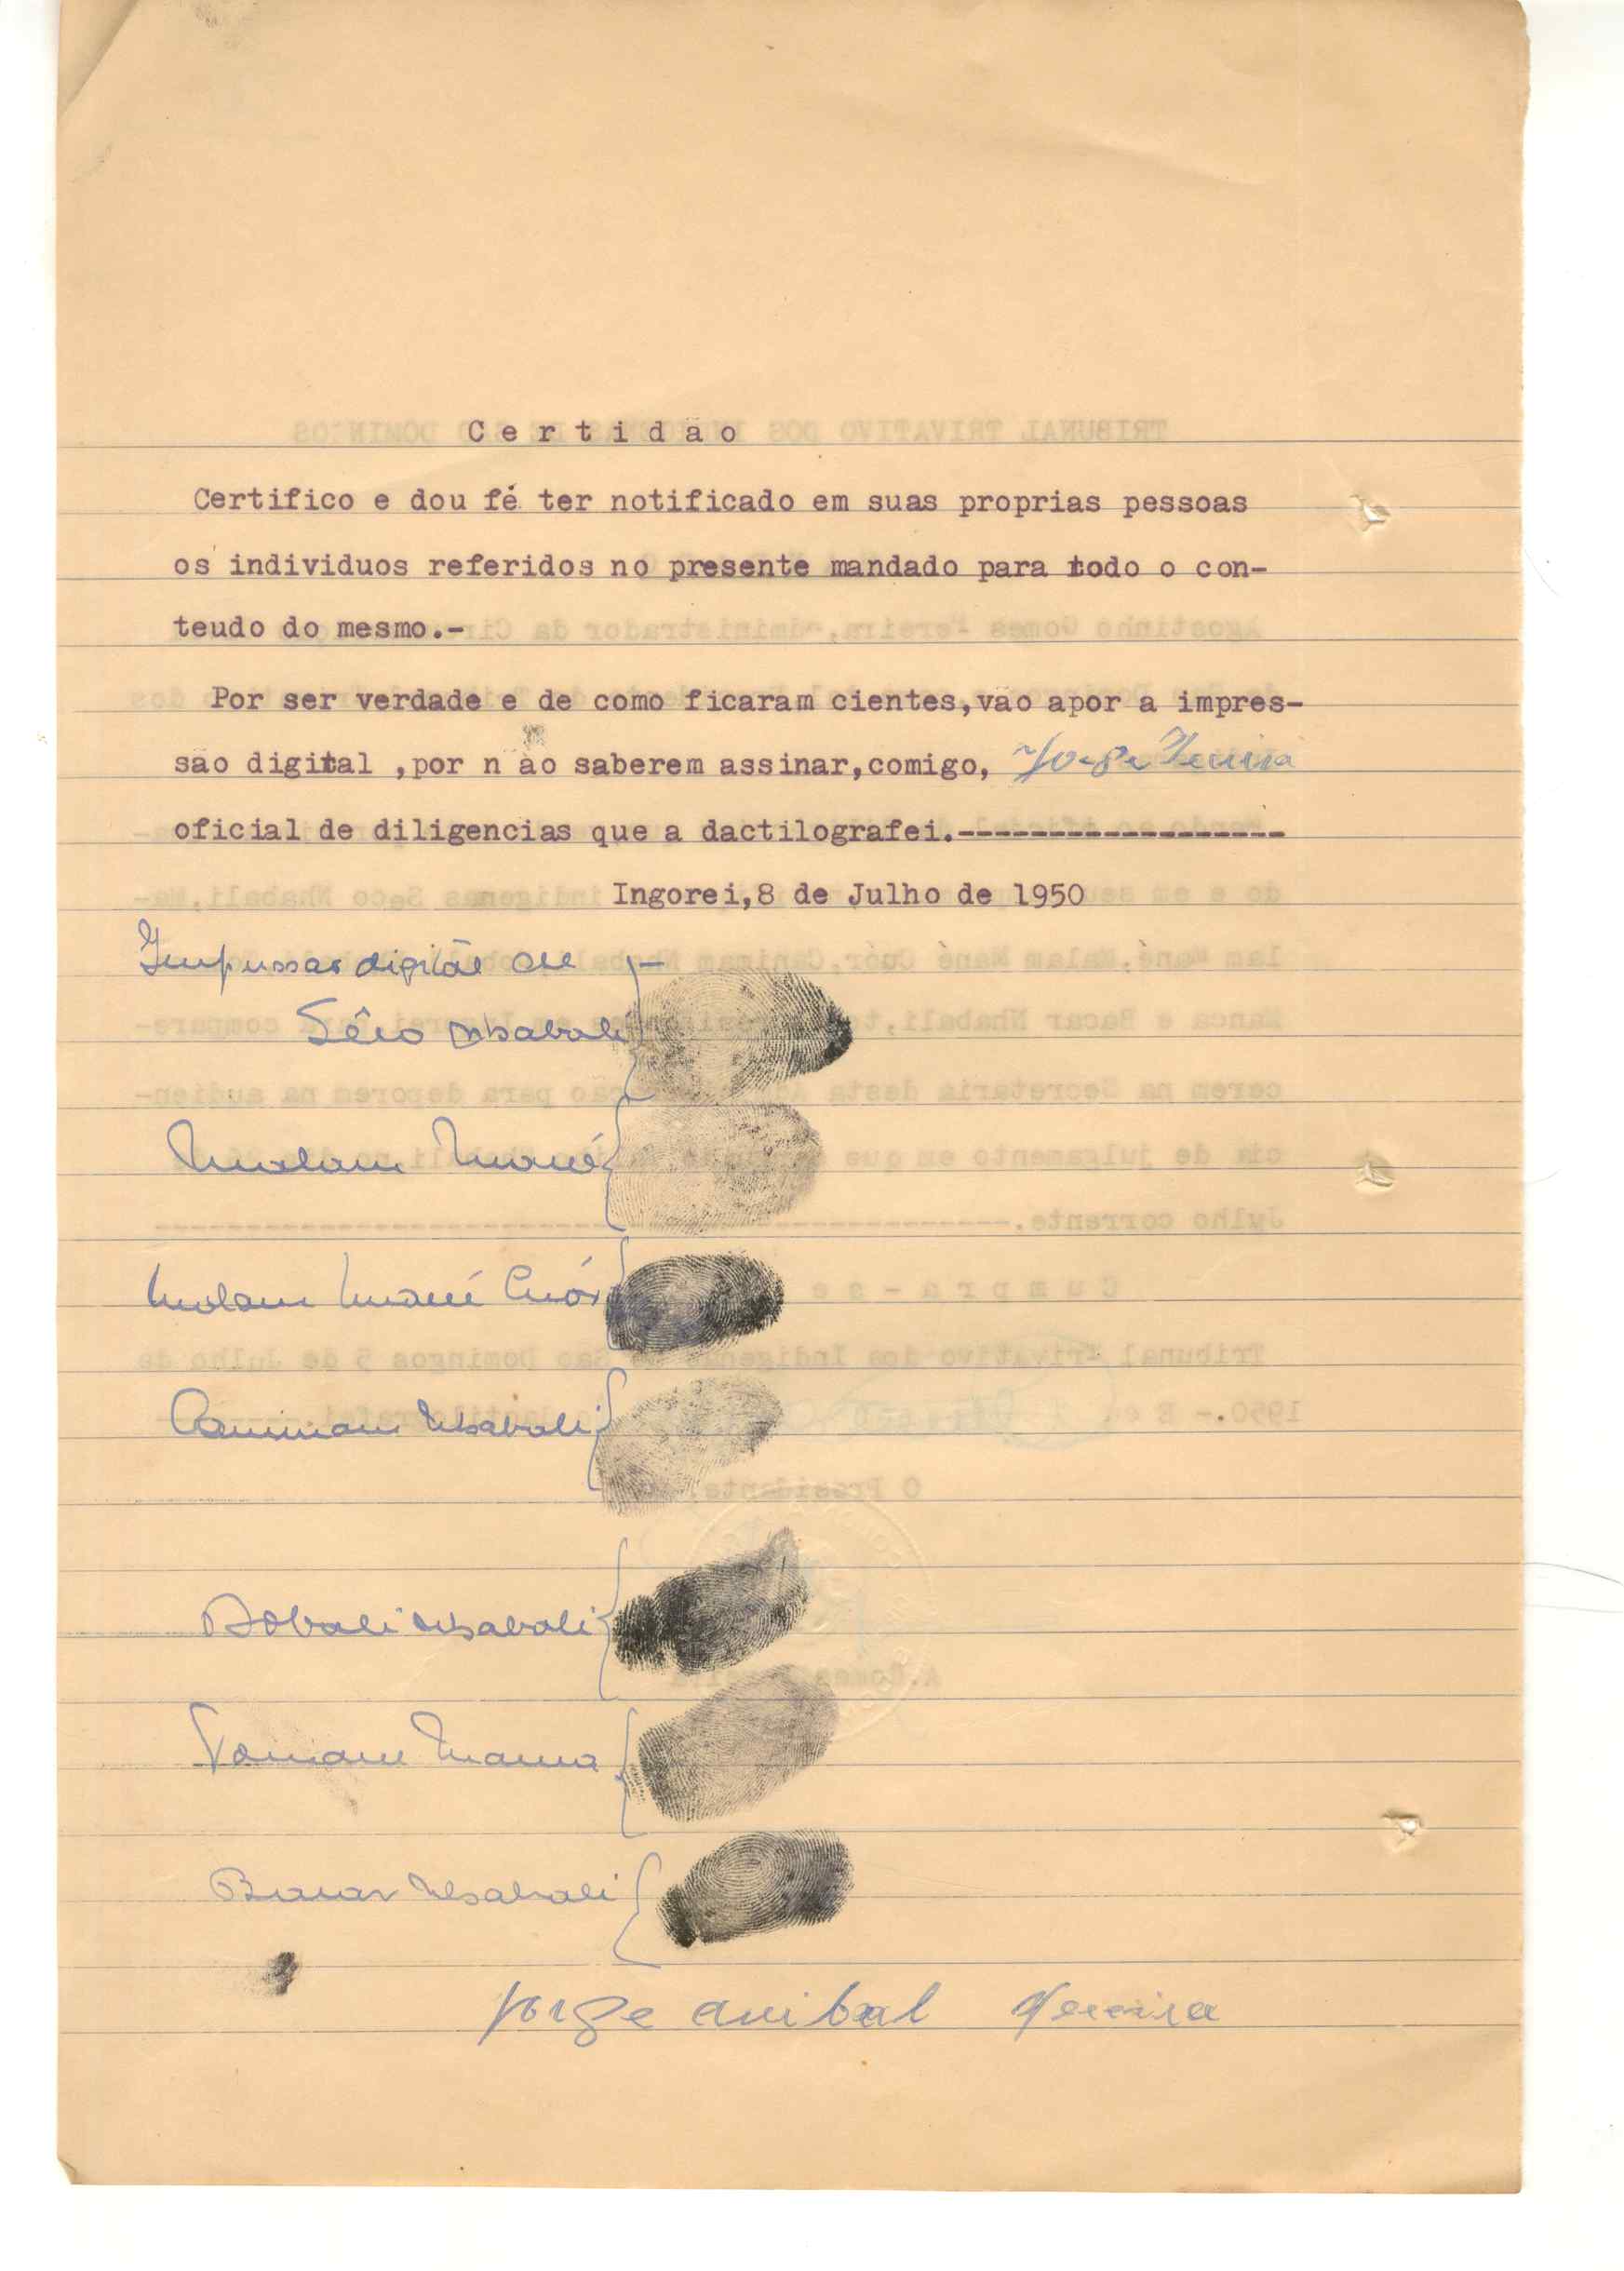 Certidão
Certifico e dou fé ter notificado em suas proprias pessoas
os individuos referidos no presente mandado para todo o con-
teudo do mesmo.-
Por ser verdade e de como ficaram cientes,vão apor a impres-
são digital ,por n ão saberem assinar,comigo, Jorge Pereira
oficial de diligencias que a dactilografei.------------------
Ingorei,8 de Julho de 1950
Impressão digital de
Sêco Nhabali
Malam Mané
Malam Mané Cuór
Canimam Nhabali
Bobali Nhabali
Manca
Bacar Nhabali
Jorge Anibal Pereira